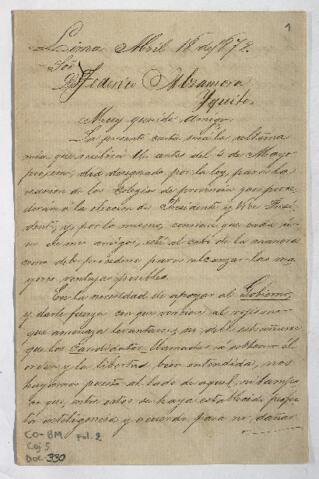 1
Lima Abril 18 de 1872.
Sor
Dn Federico Alzamora
Yquito.
Muy querido amigo:
La presente carta será la ultima
mia que recibirá U. antes del 5 de Mayo
proximo, dia designado por la ley, para la
reunion de los Colegios de provincia que proce
derán á la eleccion de Presidente y Vice Presi
dente, y por lo mismo, conviene que cada u-
no de mis amigos, esté al cabo de la manera
como debe procederse para alcanzar las ma
yores ventajas posibles.
En la necesidad de apoyar al Gobierno,
y darle fuerza con que resistir al
que amenaza levantarse; no debe estrañarse
que los Candidatos llamados á sostener el
orden y la libertad bien entendida, nos
hayamos puesto al lado de aquel, ni tampo
co que, entre estos se haya establecido
la inteligencia y acuerdo para no dañar
CO-BM fol. 2
Caj 5
Doc 330